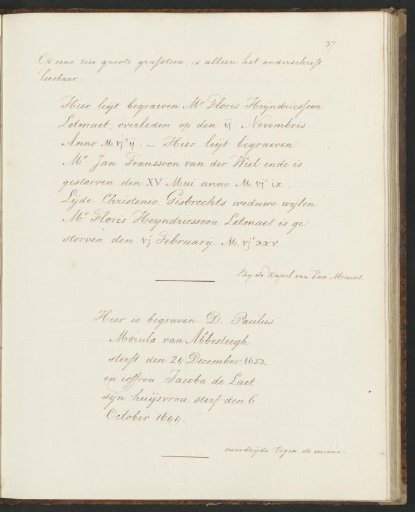 37
Op eene zeer groote grafsteen is alleen het onderschrift
leesbaar:
Hier leyt begraeven Mr Floris Heyndricssoon
Letmaet, overleden op den ij Novembris
Anno M. vjc ij. — Hier leyt begraeven
Mr Jan Franssoon van der Wiel ende is
gestorven den XV Mai anno M. vjc ix.
Lijde Christiaeo Gisbrechts weduwe wijlen
Mr Floris Heyndricssoon Letmaet is ge
storven den vj February M. vjc xxv.
By de Kapel van Van Meurs
Hier is begraven D. Paulus
Merula van Abbesteegh
sterft den 24 December 1653.
en joffrou Jacoba de Laet
syn huijsvrou sterf den 6
October 1644.
noordzijde tegen de muur.